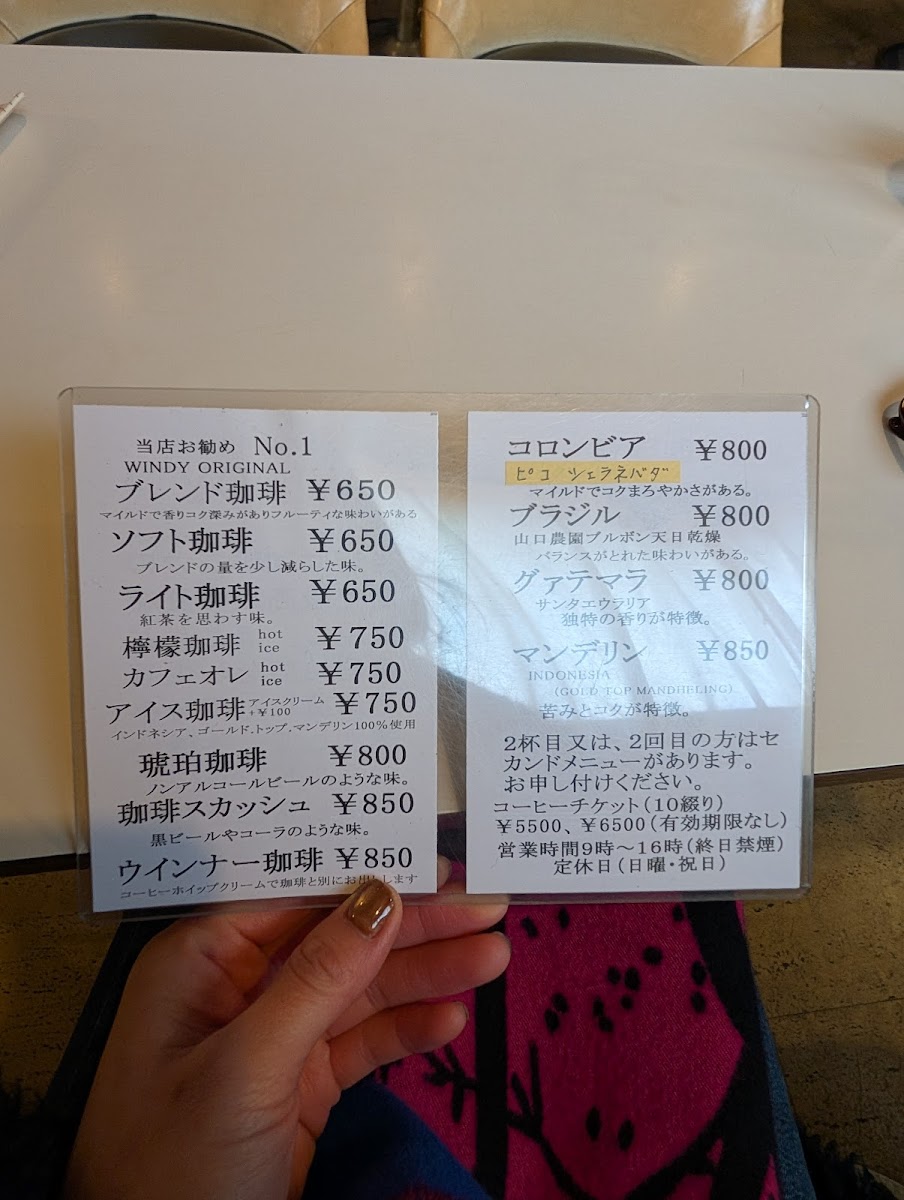 当店お勧め No.1
WINDY ORIGINAL
ブレンド珈琲 ￥650
マイルドで香りコク深みがありフルーティな味わいがある
ソフト珈琲 ￥650
ブレンドの量を少し減らした味。
ライト珈琲 ￥650
紅茶を思わす味。
檸檬珈琲 hot ice ￥750
カフェオレ hot ice ￥750
アイス珈琲 アイスクリーム +￥100 ￥750
インドネシア、ゴールド.トップ.マンデリン100%使用
琥珀珈琲 ￥800
ノンアルコールビールのような味。
珈琲スカッシュ ￥850
黒ビールやコーラのような味。
ウインナー珈琲 ￥850
コーヒーホイップクリームで珈琲と別にお出しします
コロンビア ￥800
ピコ シェラネバダ
マイルドでコクまろやかさがある。
ブラジル ￥800
山口農園ブルボン天日乾燥
バランスがとれた味わいがある。
グァテマラ ￥800
サンタエウラリア
独特の香りが特徴。
マンデリン ￥850
INDONESIA
(GOLD TOP MANDHELING)
苦みとコクが特徴。
2杯目又は、2回目の方はセ
カンドメニューがあります。
お申し付けください。
コーヒーチケット(10綴り)
￥5500、￥6500(有効期限なし)
営業時間9時～16時(終日禁煙)
定休日(日曜・祝日)